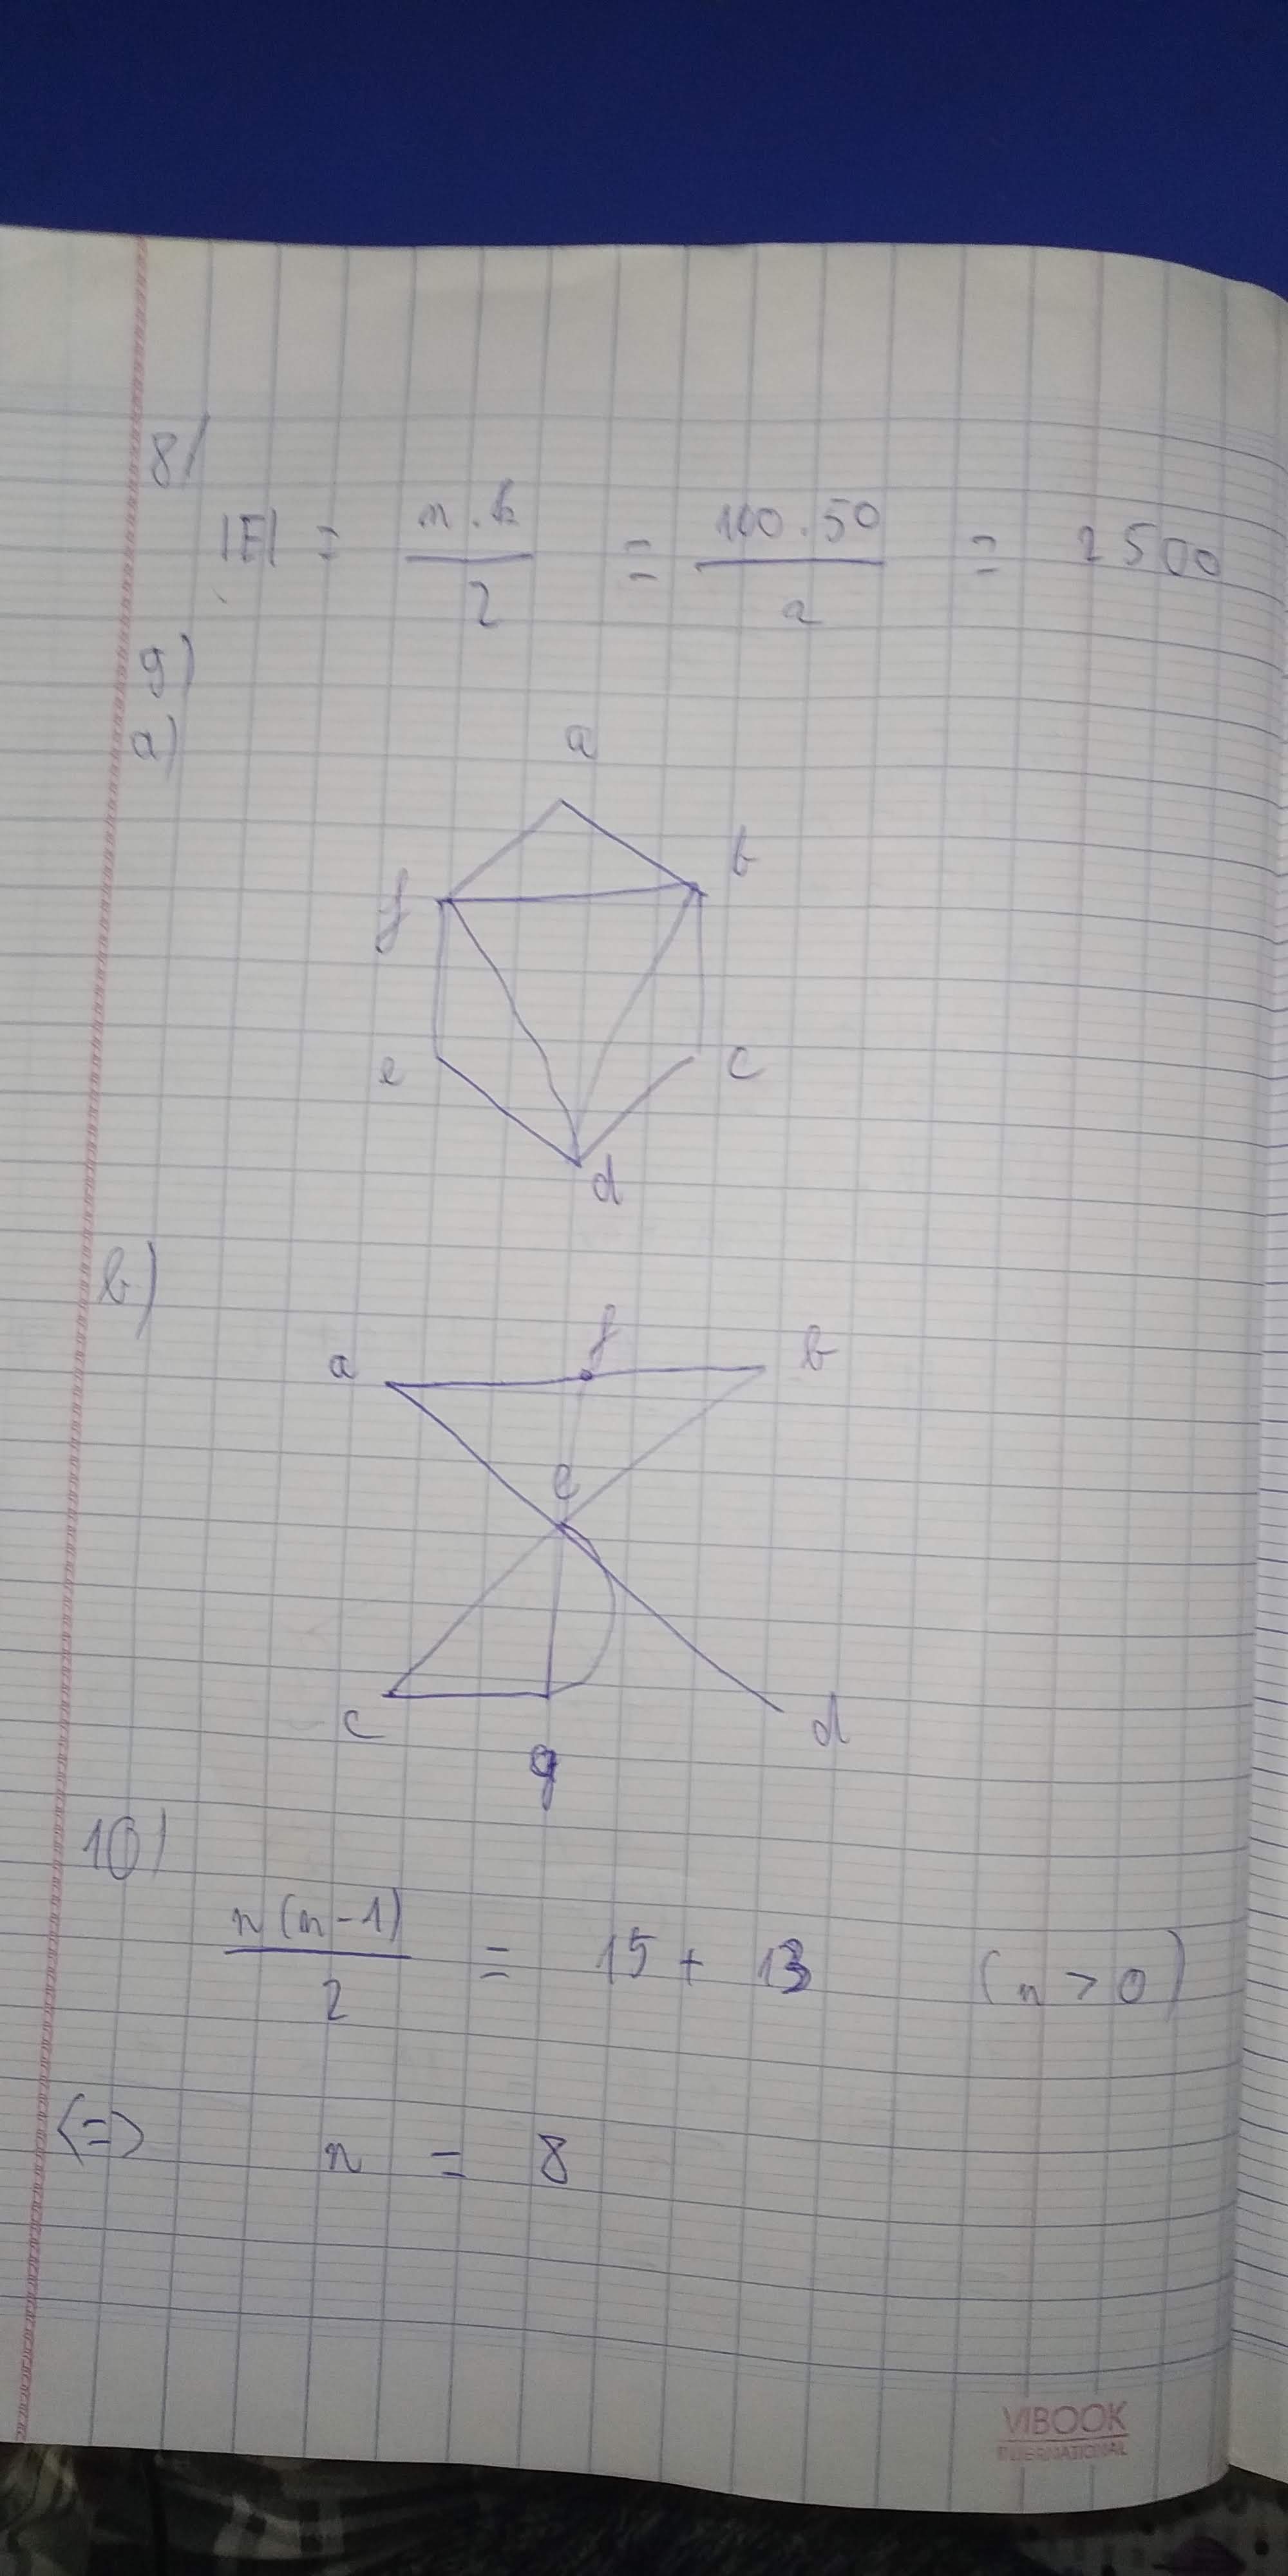 8/
|E| = n.k/2 = 100.50/2 = 2500
9)
a)
a
b
f
e
c
d
b)
a f b
e
c d
g
10)
n(n-1)/2 = 15 + 13 (n > 0)
<=> n = 8
VIBOOK
INTERNATIONAL